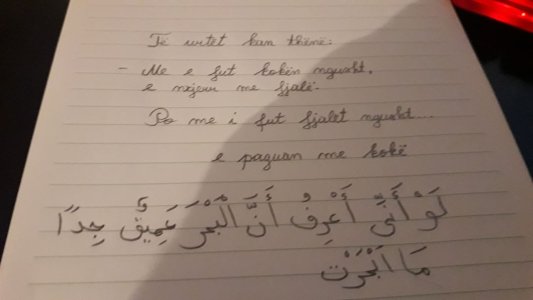 Të urtet kan thënë:
- Me e fut kokën ngusht,
e nxjerr me fjalë.
Po me i fut fjalët ngusht...
e paguan me kokë
لَوْ أَنِّي أَعْرِفُ أَنَّ الْبَحْرَ عَمِيقٌ جِدًا
مَا أَبْحَرْت